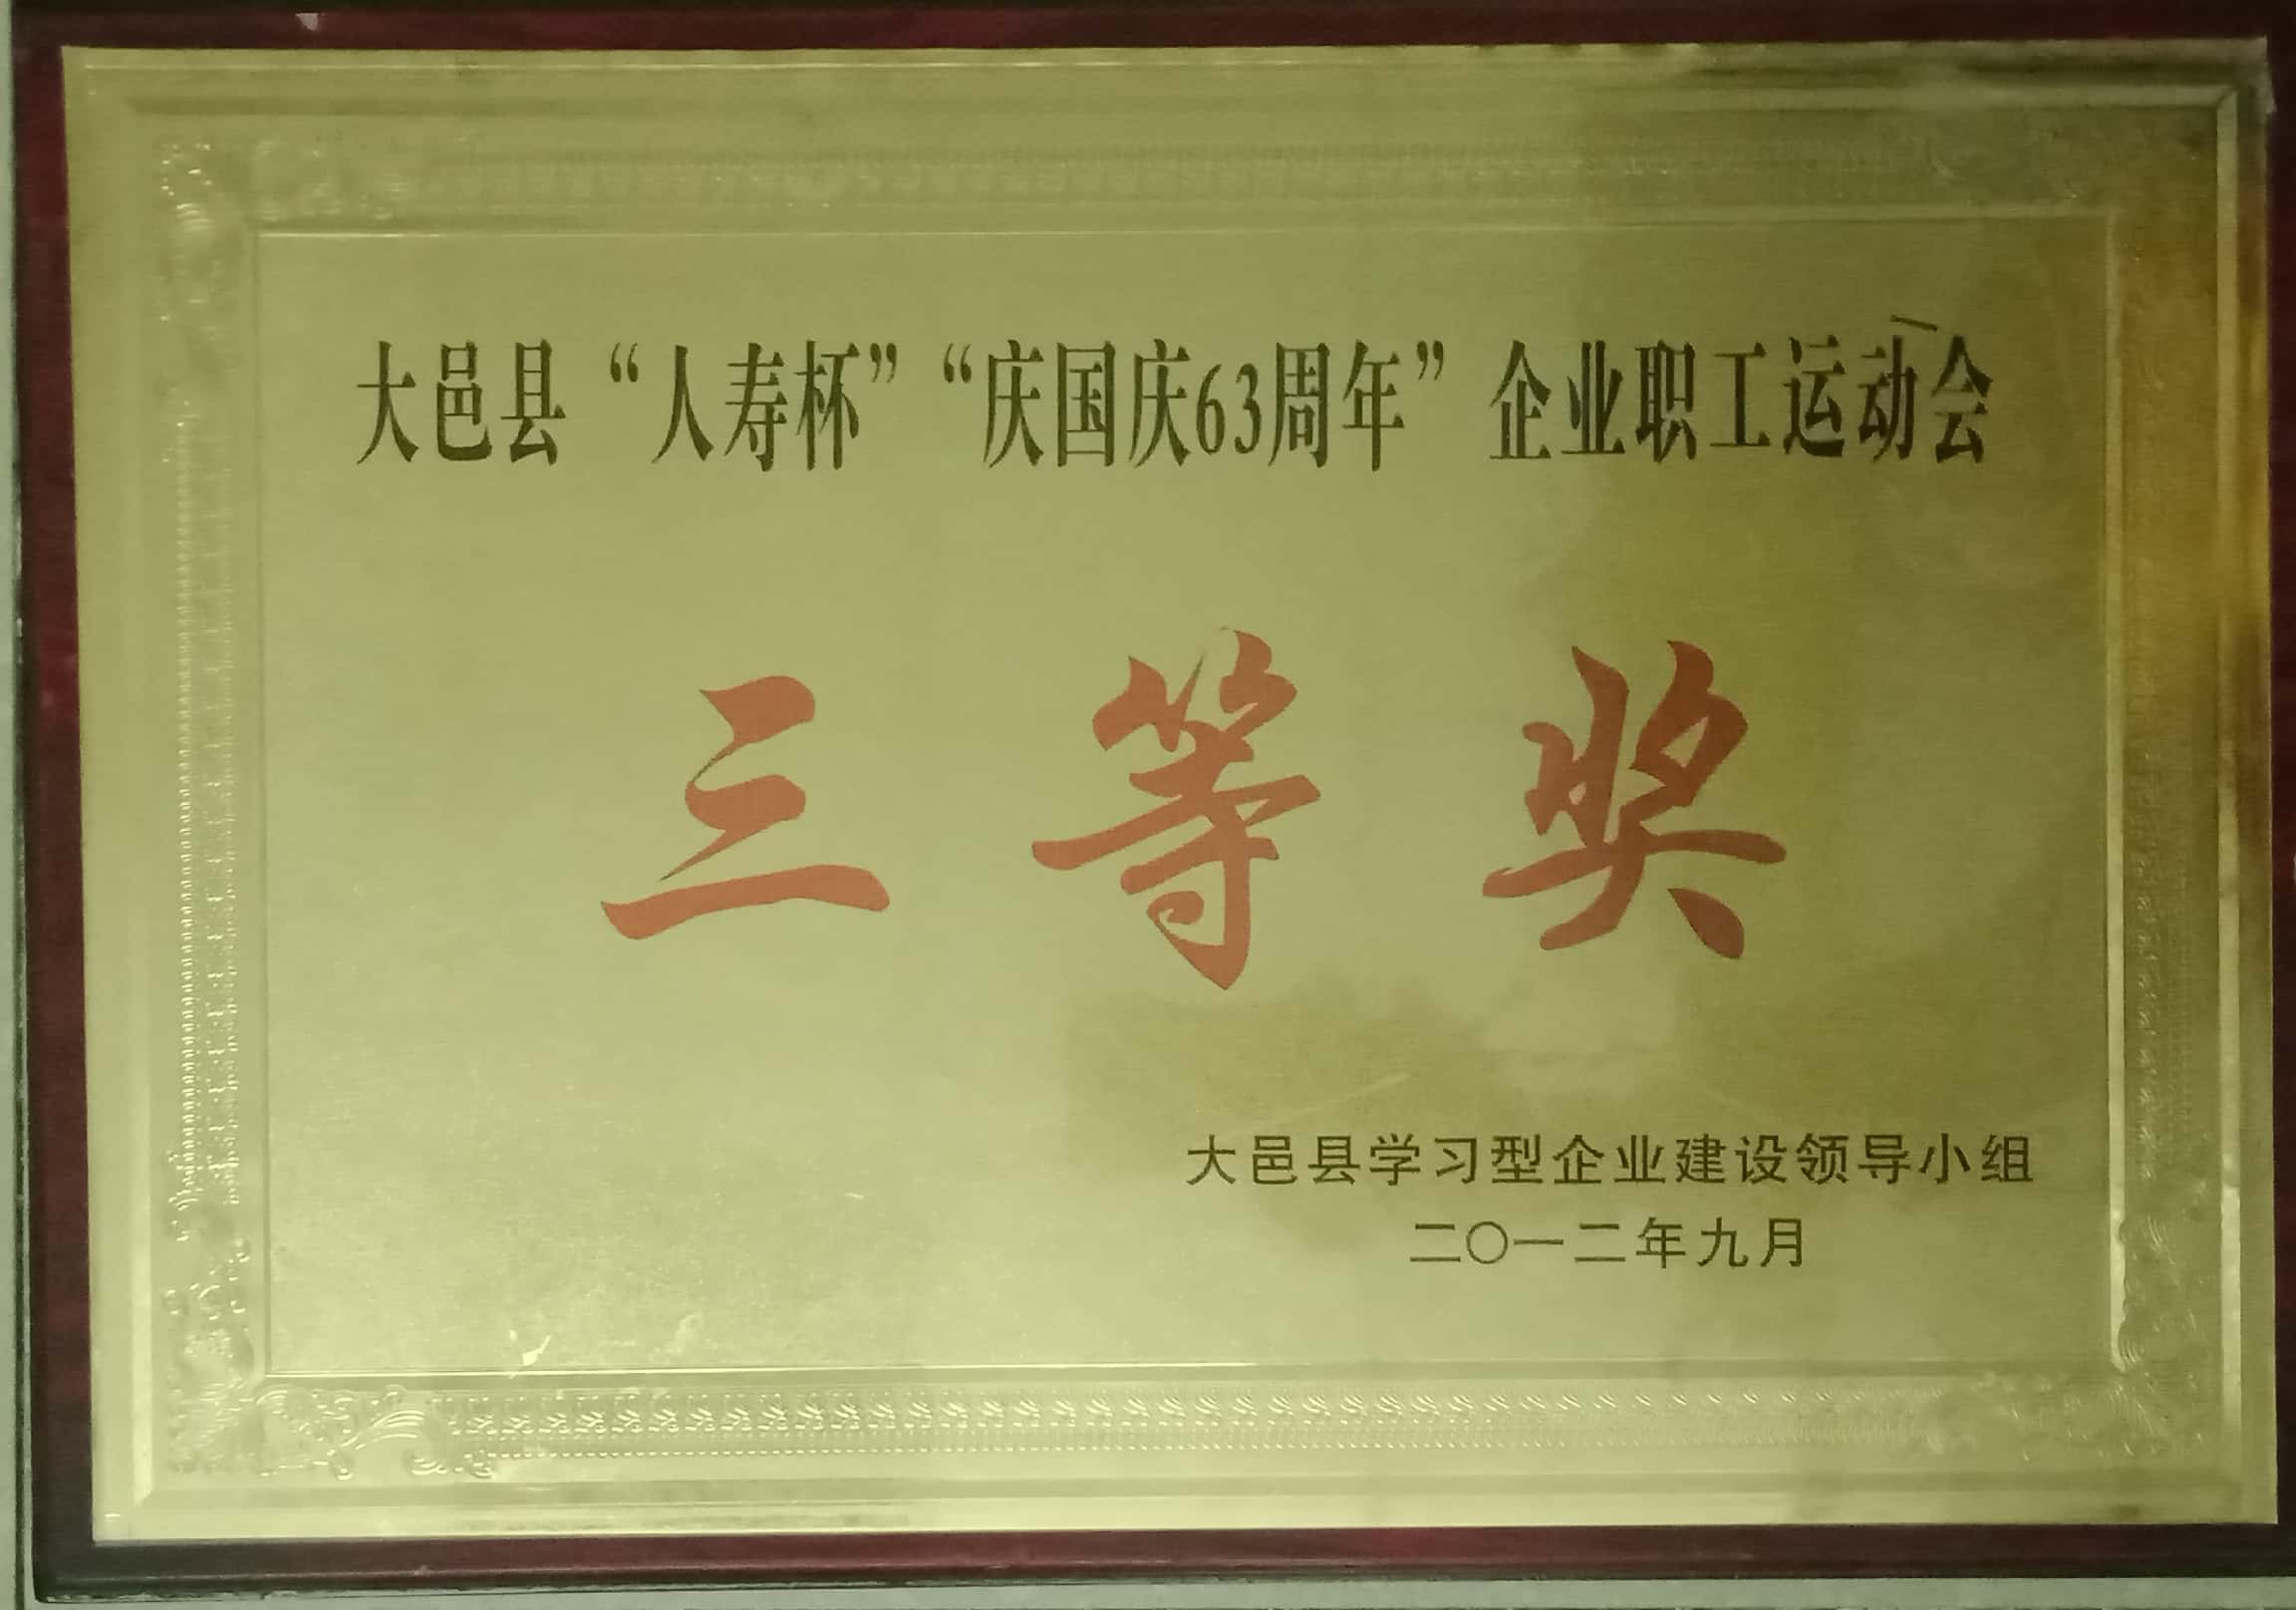 大邑县“人寿杯”“庆国庆63周年”企业职工运动会
三等奖
大邑县学习型企业建设领导小组
二〇一二年九月